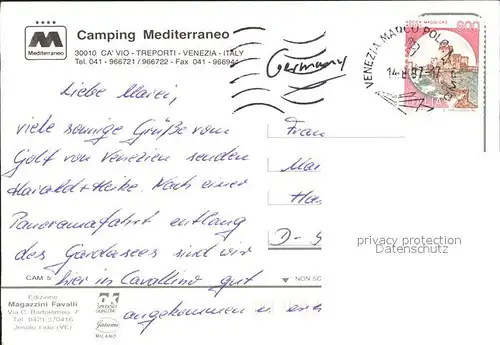 Camping Mediterraneo
Mediterraneo
30010 CA' VIO - TREPORTI - VENEZIA - ITALY
Tel. 041 - 966721 / 966722 - Fax 041 - 966944
Germany
VENEZIA MARCO POLO
14.8.97-17
ROCCA MAGGIORE
800
ITALIA
Liebe Marei,
viele sonnige Grüße vom
Golf von Venezien senden
Harald + Heike. Nach einer
Panoramafahrt entlang
des Gardasees sind wir
hier in Cavallino gut
angekommen u.
Frau
Mar
Ha
D-
privacy protection
Datenschutz
CAM. 5
NON SC
Edizione
Magazzini Favalli
Via C. Bartolomeo, 7
Tel. 0421-370416
Jesolo Lido (VE)
MILANO